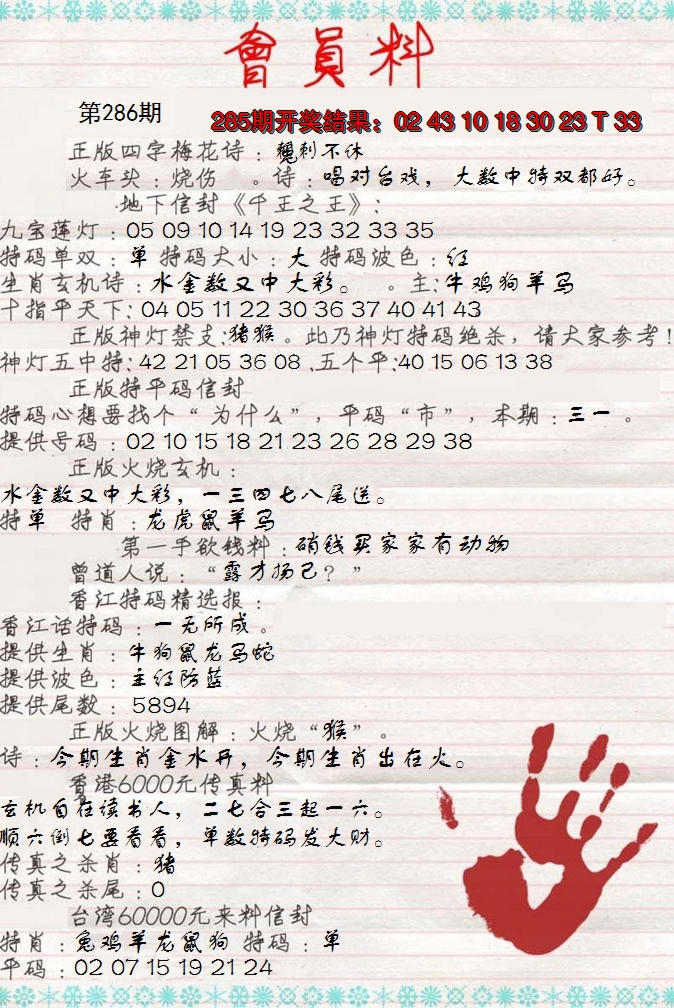 會員料
第286期
285期开奖结果：02 43 10 18 30 23 T 33
正版四字梅花诗：魏刺不休
火车头：烧伤 。诗：唱对台戏，大数中特双都好。
地下信封《千王之王》：
九宝莲灯：05 09 10 14 19 23 32 33 35
特码单双：单 特码大小：大 特码波色：红
生肖玄机诗：水金数又中大彩。 。主：牛鸡狗羊马
十指平天下：04 05 11 22 30 36 37 40 41 43
正版神灯禁支：猪猴。此乃神灯特码绝杀，请大家参考！
神灯五中特：42 21 05 36 08 .五个平：40 15 06 13 38
正版特平码信封
特码心想要找个“为什么”，平码“市”，本期：三一 。
提供号码：02 10 15 18 21 23 26 28 29 38
正版火烧玄机：
水金数又中大彩，一三四七八尾送。
特单 特肖：龙虎鼠羊马
第一手欲钱料：硝钱买家家有动物
曾道人说：“露才扬己？”
香江特码精选报：
香江话特码：一无所成。
提供生肖：牛狗鼠龙马蛇
提供波色：主红防蓝
提供尾数：5894
正版火烧图解：火烧“猴”。
诗：今期生肖金水开，今期生肖出在火。
香港6000元传真料
玄机自在读书人，二七合三起一六。
顺六倒七要看看，单数特码发大财。
传真之杀肖：猪
传真之杀尾：0
台湾60000元来料信封
特肖：兔鸡羊龙鼠狗 特码：单
平码：02 07 15 19 21 24